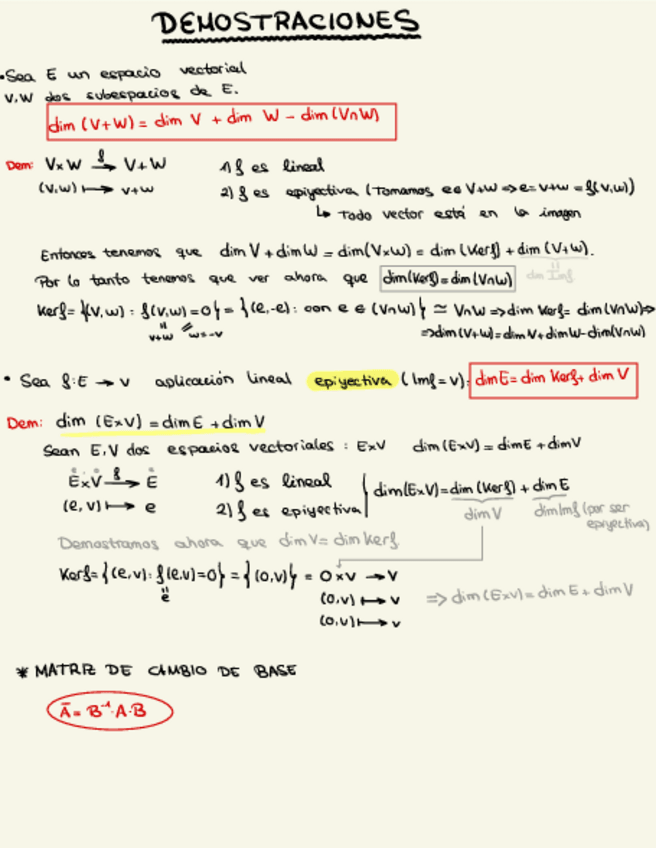 DEMOSTRACIONES
•Sea E un espacio vectorial
V,W dos subespacios de E.
dim (V+W) = dim V + dim W - dim(V∩W)
Dem: V×W —f→ V+W 1) f es lineal
(v,w) ⟼ v+w 2) f es epiyectiva (Tomamos e∈V+W ⇒ e=v+w=f(v,w))
↳ Todo vector está en la imagen
Entonces tenemos que dim V + dim W = dim(V×W) = dim (Kerf) + dim (V+W).
Por lo tanto tenemos que ver ahora que dim(Kerf)=dim(V∩W) dim Imf
Kerf= {(v,w) : f(v,w)=0} = {(e,-e): con e ∈ (V∩W)} ≃ V∩W ⇒ dim Kerf= dim(V∩W)⇒
v+w w=-v ⇒dim(V+W)=dim V+dim W-dim(V∩W)
• Sea f:E → V aplicación lineal epiyectiva (Imf=V): dim E= dim Kerf+ dim V
Dem: dim (E×V) = dim E + dim V
Sean E,V dos espacios vectoriales : E×V dim(E×V) = dim E + dim V
E×V —f→ E 1) f es lineal dim(E×V)=dim (Kerf) + dim E
(e,v) ⟼ e 2) f es epiyectiva dim V dim Imf (por ser
epiyectiva)
Demostramos ahora que dim V= dim Kerf.
Kerf= {(e,v): f(e,v)=0} = {(0,v)} = 0×V → V
e (0,v) ⟼ v ⇒ dim (E×V) = dim E + dim V
(0,u) ⟼ v
* MATRIZ DE CAMBIO DE BASE
Ā = B⁻¹·A·B